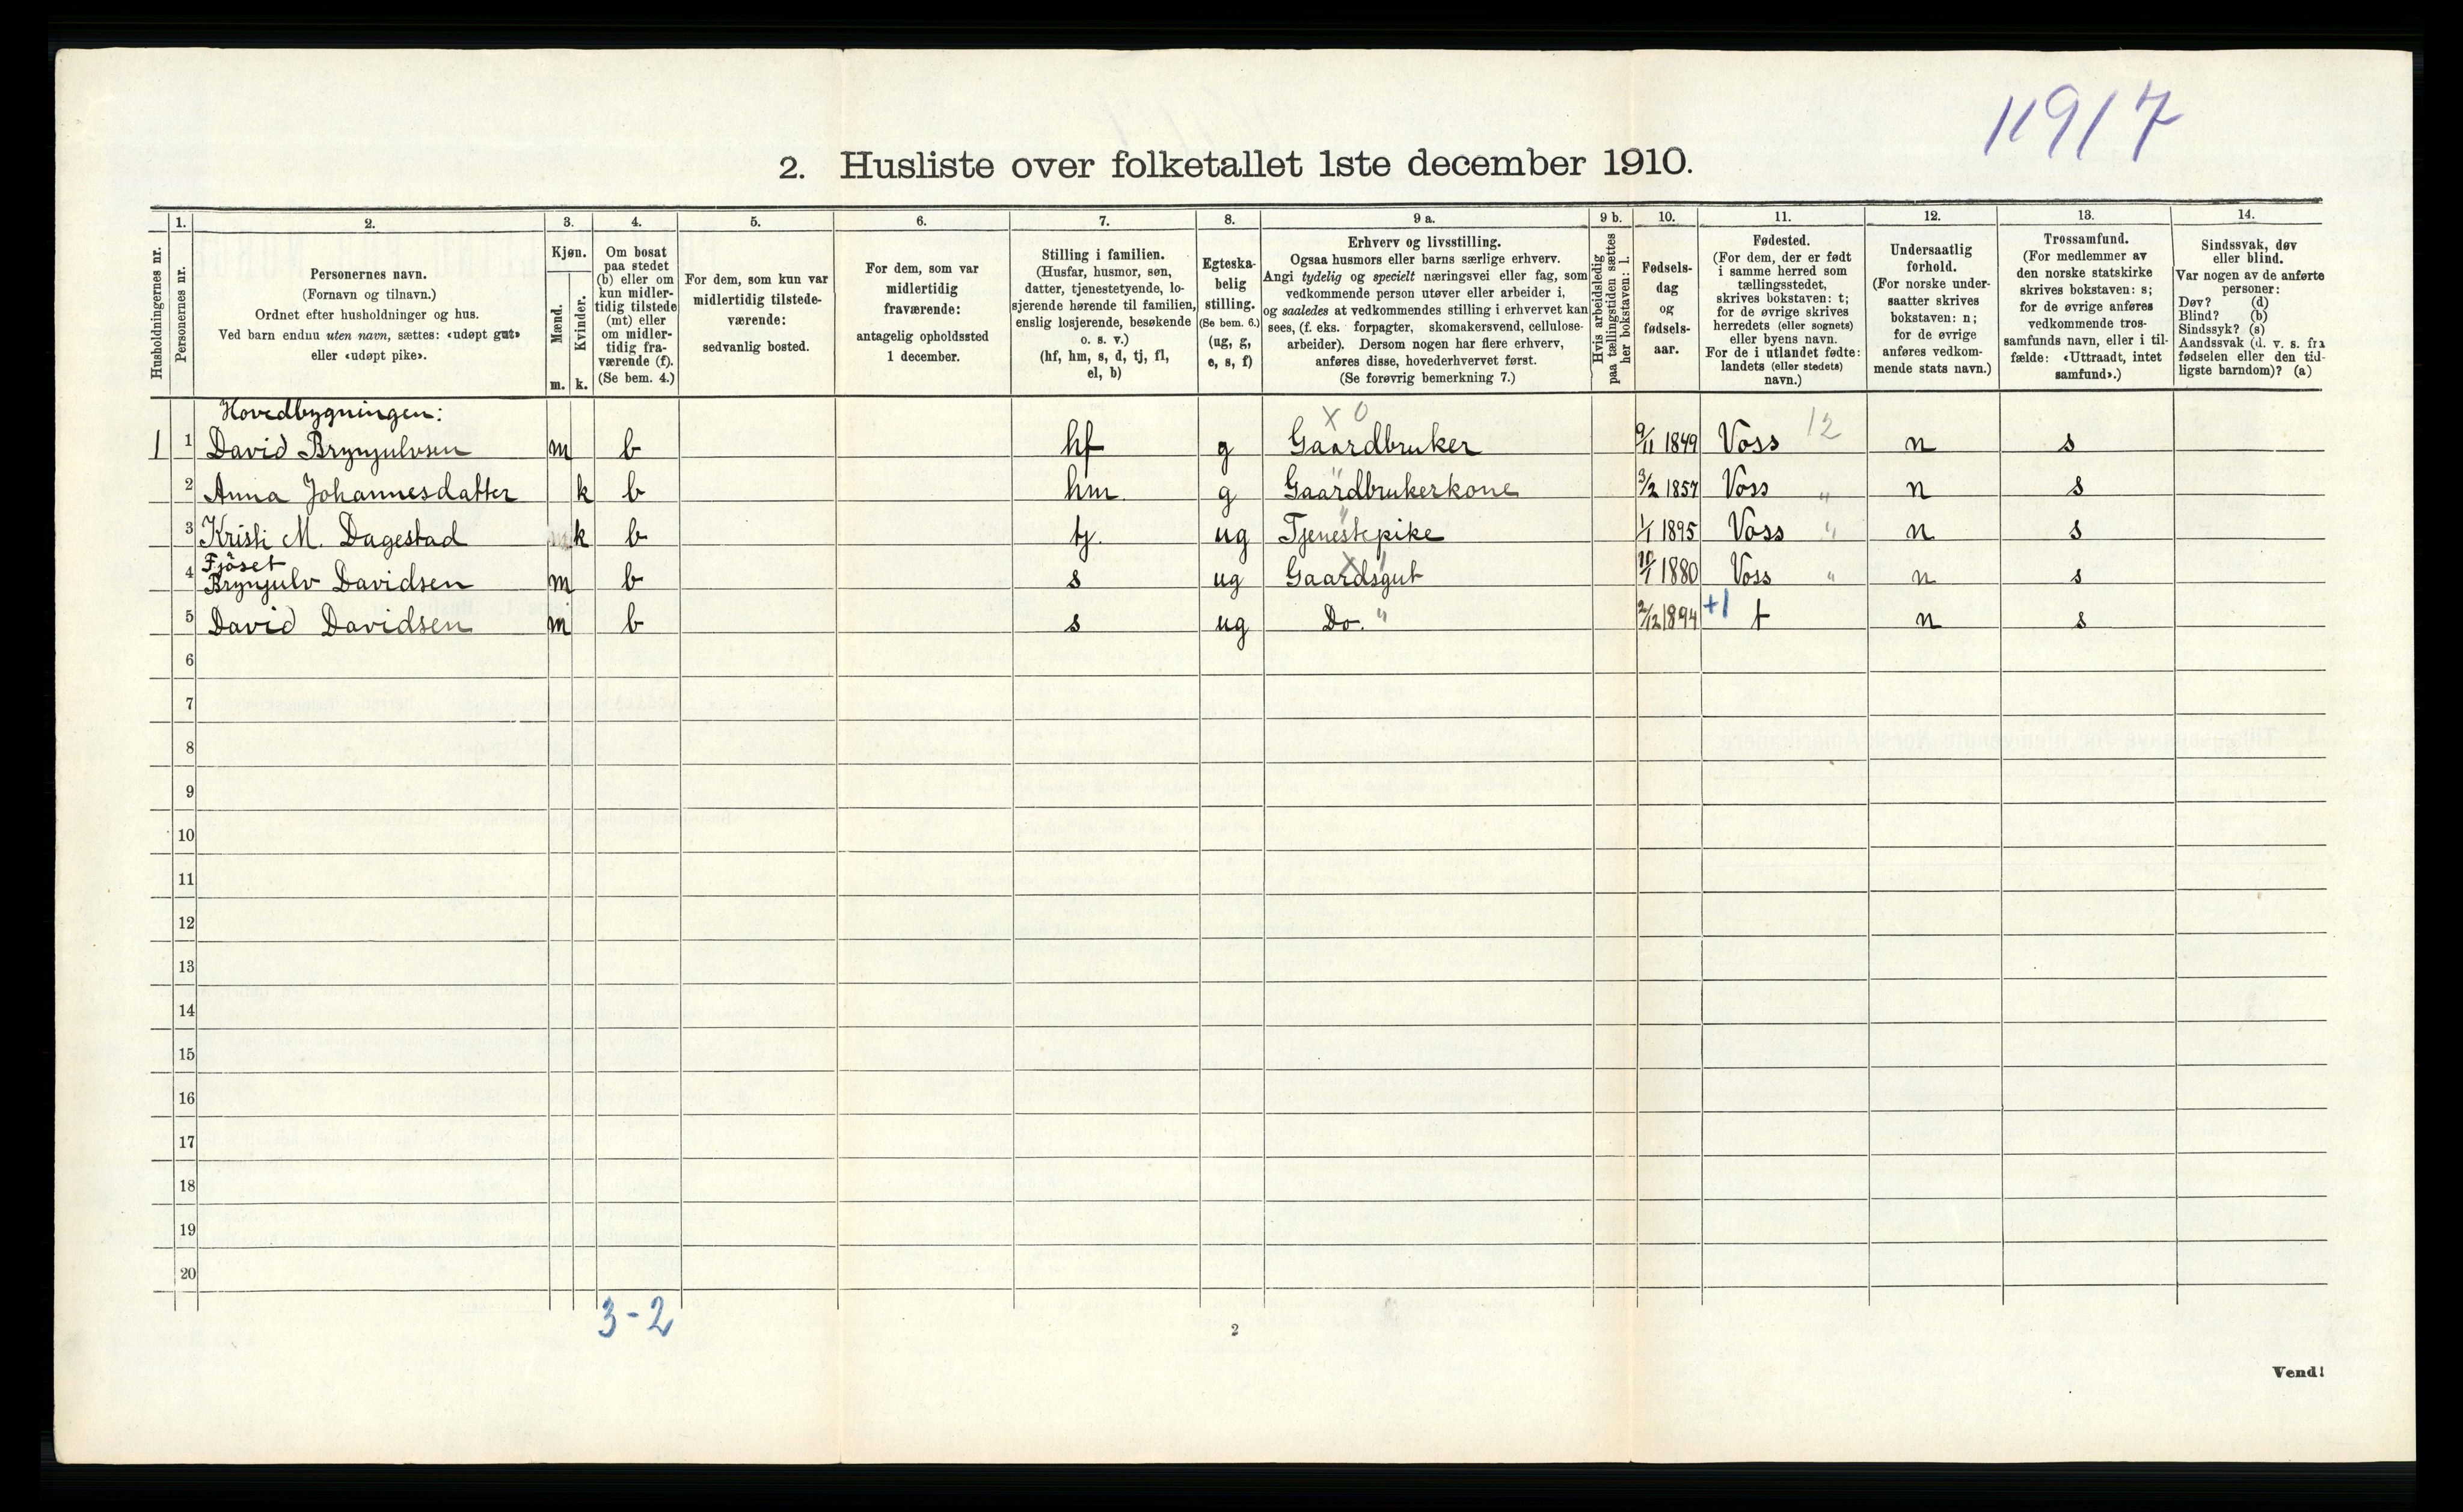 11917
2. Husliste over folketallet 1ste december 1910.
Husholdningernes nr.
1.
Personernes nr.
2.
Personernes navn.
(Fornavn og tilnavn.)
Ordnet efter husholdninger og hus.
Ved barn endnu uten navn, sættes: «udøpt gut»
eller «udøpt pike».
3.
Kjøn.
Mænd.
Kvinder.
m. k.
4.
Om bosat
paa stedet
(b) eller om
kun midler-
tidig tilstede
(mt) eller
om midler-
tidig fra-
værende (f).
(Se bem. 4.)
5.
For dem, som kun var
midlertidig tilstede-
værende:
sedvanlig bosted.
6.
For dem, som var
midlertidig
fraværende:
antagelig opholdssted
1 december.
7.
Stilling i familien.
(Husfar, husmor, søn,
datter, tjenestetyende, lo-
sjerende hørende til familien,
enslig losjerende, besøkende
o. s. v.)
(hf, hm, s, d, tj, fl,
el, b)
8.
Egteska-
belig
stilling.
(Se bem. 6.)
(ug, g,
e, s, f)
9 a.
Erhverv og livsstilling.
Ogsaa husmors eller barns særlige erhverv.
Angi tydelig og specielt næringsvei eller fag, som
vedkommende person utøver eller arbeider i,
og saaledes at vedkommendes stilling i erhvervet kan
sees, (f. eks. forpagter, skomakersvend, cellulose-
arbeider). Dersom nogen har flere erhverv,
anføres disse, hovederhvervet først.
(Se forøvrig bemerkning 7.)
9 b.
Hvis arbeidsledig
paa tællingstiden sættes
her bokstaven: l.
10.
Fødsels-
dag
og
fødsels-
aar.
11.
Fødested.
(For dem, der er født
i samme herred som
tællingsstedet,
skrives bokstaven: t;
for de øvrige skrives
herredets (eller sognets)
eller byens navn.
For de i utlandet fødte:
landets (eller stedets)
navn.)
12.
Undersaatlig
forhold.
(For norske under-
saatter skrives
bokstaven: n;
for de øvrige
anføres vedkom-
mende stats navn.)
13.
Trossamfund.
(For medlemmer av
den norske statskirke
skrives bokstaven: s;
for de øvrige anføres
vedkommende tros-
samfunds navn, eller i til-
fælde: «Uttraadt, intet
samfund».)
14.
Sindssvak, døv
eller blind.
Var nogen av de anførte
personer:
Døv? (d)
Blind? (b)
Sindssyk? (s)
Aandssvak (d. v. s. fra
fødselen eller den tid-
ligste barndom)? (a)
Hovedbygningen: X 0
1 1 David Brynjulvsen m b hf g Gaardbruker 9/11 1849 Voss 12 n s
2 Anna Johannesdatter k b hm g Gaardbrukerkone " 3/2 1857 Voss " n s
3 Kristi M. Dagestad k b tj. ug Tjenestepike " 1/1 1895 Voss " n s
Fjöset
4 Brynjulv Davidsen m b s ug Gaardsgut X 10/1 1880 Voss " n s
5 David Davidsen m b s ug Do. " 2/12 1894 +1 t n s
6
7
8
9
10
11
12
13
14
15
16
17
18
19
20
3-2
2
Vend!